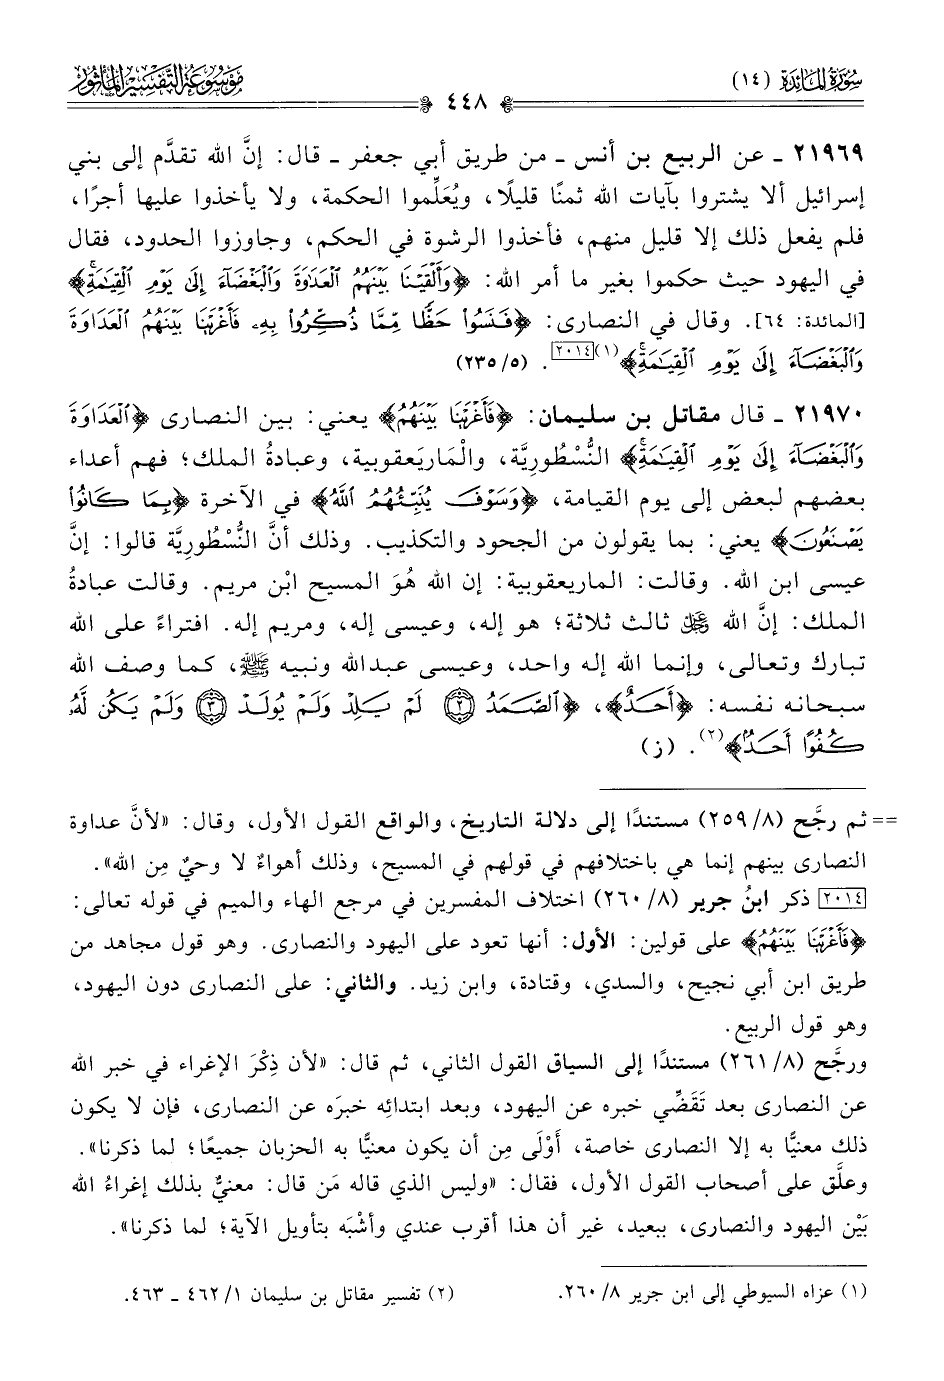 سورة المائدة (١٤)
٤٤٨
موسوعة التفسير المأثور
٢١٩٦٩ ـ عن الربيع بن أنس ـ من طريق أبي جعفر ـ قال: إنَّ الله تقدَّم إلى بني
إسرائيل ألا يشتروا بآيات الله ثمنًا قليلًا، ويُعَلِّموا الحكمة، ولا يأخذوا عليها أجرًا،
فلم يفعل ذلك إلا قليل منهم، فأخذوا الرشوة في الحكم، وجاوزوا الحدود، فقال
في اليهود حيث حكموا بغير ما أمر الله: ﴿وَأَلْقَيْنَا بَيْنَهُمُ ٱلْعَدَٰوَةَ وَٱلْبَغْضَآءَ إِلَىٰ يَوْمِ ٱلْقِيَٰمَةِۚ﴾
[المائدة: ٦٤]. وقال في النصارى: ﴿فَنَسُوا۟ حَظًّا مِّمَّا ذُكِّرُوا۟ بِهِۦ فَأَغْرَيْنَا بَيْنَهُمُ ٱلْعَدَاوَةَ
وَٱلْبَغْضَآءَ إِلَىٰ يَوْمِ ٱلْقِيَٰمَةِۚ﴾(١)[٢٠١٤]. (٢٣٥/٥)
٢١٩٧٠ ـ قال مقاتل بن سليمان: ﴿فَأَغْرَيْنَا بَيْنَهُمُ﴾ يعني: بين النصارى ﴿ٱلْعَدَاوَةَ
وَٱلْبَغْضَآءَ إِلَىٰ يَوْمِ ٱلْقِيَٰمَةِۚ﴾ النُّسْطُوريَّة، والْماريَعقوبية، وعبادةُ الملك؛ فهم أعداء
بعضهم لبعض إلى يوم القيامة، ﴿وَسَوْفَ يُنَبِّئُهُمُ ٱللَّهُ﴾ في الآخرة ﴿بِمَا كَانُوا۟
يَصْنَعُونَ﴾ يعني: بما يقولون من الجحود والتكذيب. وذلك أنَّ النُّسْطُوريَّة قالوا: إنَّ
عيسى ابن الله. وقالت: الماريعقوبية: إن الله هُوَ المسيح ابْن مريم. وقالت عبادةُ
الملك: إنَّ الله ﷿ ثالث ثلاثة؛ هو إله، وعيسى إله، ومريم إله. افتراءً على الله
تبارك وتعالى، وإنما الله إله واحد، وعيسى عبدالله ونبيه ﷺ، كما وصف الله
سبحانه نفسه: ﴿أَحَدٌ﴾، ﴿ٱلصَّمَدُ ۝٢ لَمْ يَلِدْ وَلَمْ يُولَدْ ۝٣ وَلَمْ يَكُن لَّهُۥ
كُفُوًا أَحَدٌۢ﴾(٢). (ز)
== ثم رجَّح (٢٥٩/٨) مستندًا إلى دلالة التاريخ، والواقع القول الأول، وقال: «لأنَّ عداوة
النصارى بينهم إنما هي باختلافهم في قولهم في المسيح، وذلك أهواءٌ لا وحيٌ مِن الله».
[٢٠١٤] ذكر ابنُ جرير (٢٦٠/٨) اختلاف المفسرين في مرجع الهاء والميم في قوله تعالى:
﴿فَأَغْرَيْنَا بَيْنَهُمُ﴾ على قولين: الأول: أنها تعود على اليهود والنصارى. وهو قول مجاهد من
طريق ابن أبي نجيح، والسدي، وقتادة، وابن زيد. والثاني: على النصارى دون اليهود،
وهو قول الربيع.
ورجَّح (٢٦١/٨) مستندًا إلى السياق القول الثاني، ثم قال: «لأن ذِكْرَ الإغراء في خبر الله
عن النصارى بعد تَقَضِّي خبره عن اليهود، وبعد ابتدائِه خبرَه عن النصارى، فإن لا يكون
ذلك معنيًّا به إلا النصارى خاصة، أَوْلَى مِن أن يكون معنيًّا به الحزبان جميعًا؛ لما ذكرنا».
وعلَّق على أصحاب القول الأول، فقال: «وليس الذي قاله مَن قال: معنيٌّ بذلك إغراءُ الله
بَيْن اليهود والنصارى، ببعيد، غير أن هذا أقرب عندي وأشْبَه بتأويل الآية؛ لما ذكرنا».
(١) عزاه السيوطي إلى ابن جرير ٢٦٠/٨.
(٢) تفسير مقاتل بن سليمان ٤٦٢/١ ـ ٤٦٣.